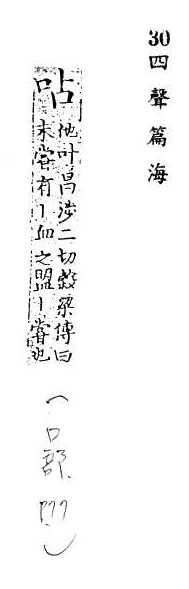 30 四聲篇海
呫
他叶昌涉二切穀梁傳曰
未嘗有丨血之盟丨嘗也
(口部